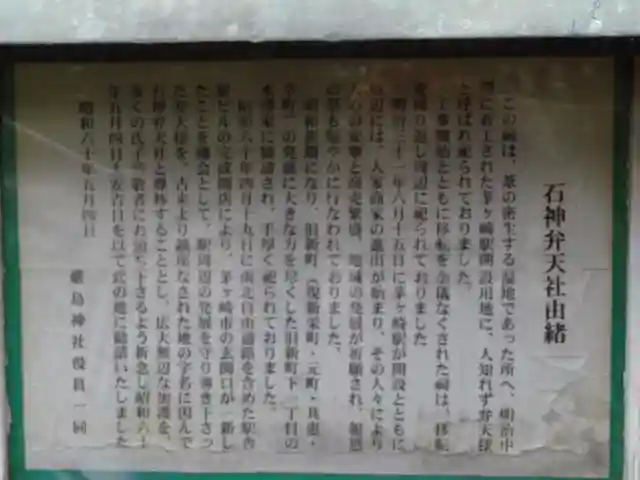 石神弁天社由緒
この祠は、葦の密生する湿地であった所へ、明治中
に着工された茅ヶ崎駅開設用地に、人知れず弁天様
と呼ばれ祀られておりました。
工事開始とともに移転を余儀なくされた祠は、移転
を繰り返し周辺に祀られておりました
明治三十一年六月十五日に茅ヶ崎駅が開設とともに
辺には、人家商家の進出が始まり、その人々により
の家業と商売繁盛、地域の発展が祈願され、
祭も賑やかに行なわれておりました。
昭和初期になり、旧新町（現新栄町・元町・共恵・
幸町）の発展に大きな力を尽くした旧新町下一丁目の
家に勧請され、手厚く祀られておりました。
昭和六十年四月十九日に南北自由通路を含めた駅舎
駅ビルの完成開店により、茅ヶ崎市の玄関口が一新し
たことを機会として、駅周辺の発展を守り導き下さっ
た弁天様を、古来より鎮座なされた地の字名に因んで
石神弁天社と尊称することとし、広大無辺な御護を、
多くの氏子 敬者にお頒ち下さるよう祈念し昭和六十
年五月四日 吉日を以て此の地に勧請いたしました
昭和六十年五月四日
厳島神社役員一同